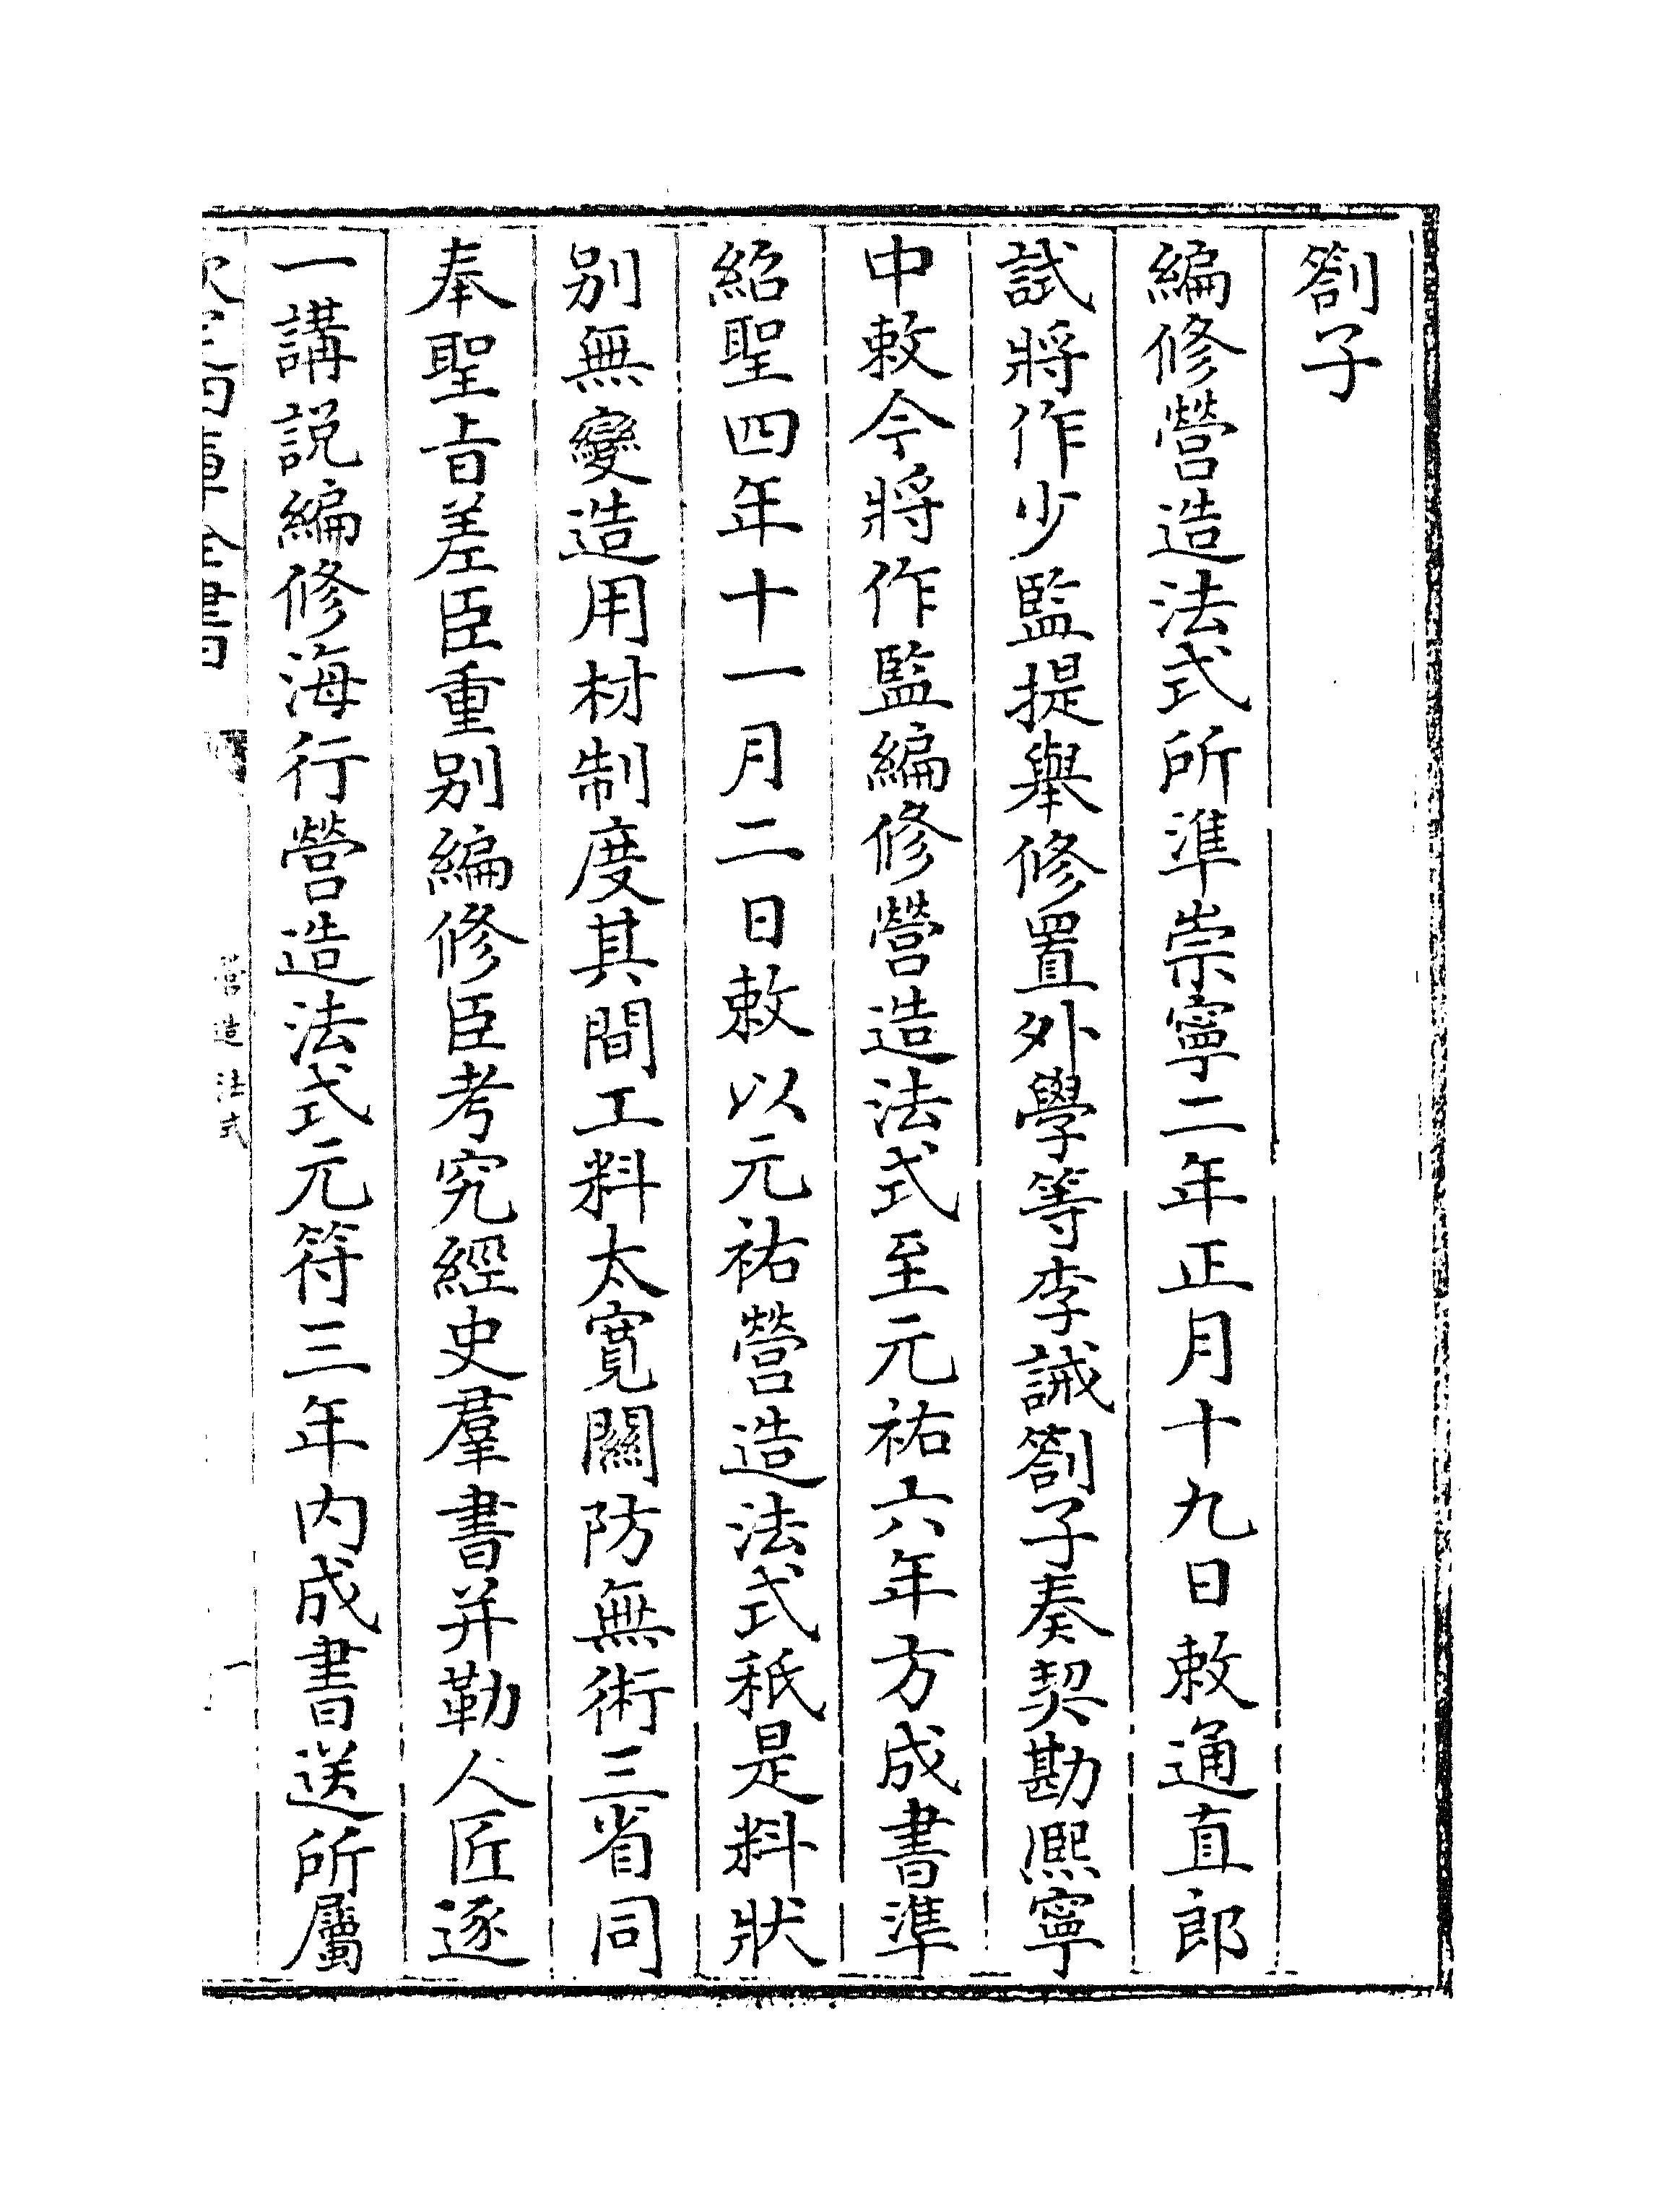 劄子
編修營造法式所準崇寧二年正月十九日敕通直郎
試將作少監提舉修置外學等李誡劄子奏契勘熙寧
中敕令將作監編修營造法式至元祐六年方成書準
紹聖四年十一月二日敕以元祐營造法式秖是料狀
别無變造用材制度其間工料太寛關防無術三省同
奉聖旨差臣重别編修臣考究經史羣書并勒人匠逐
一講説編修海行營造法式元符三年内成書送所屬
欽定四庫全書
營造法式
一